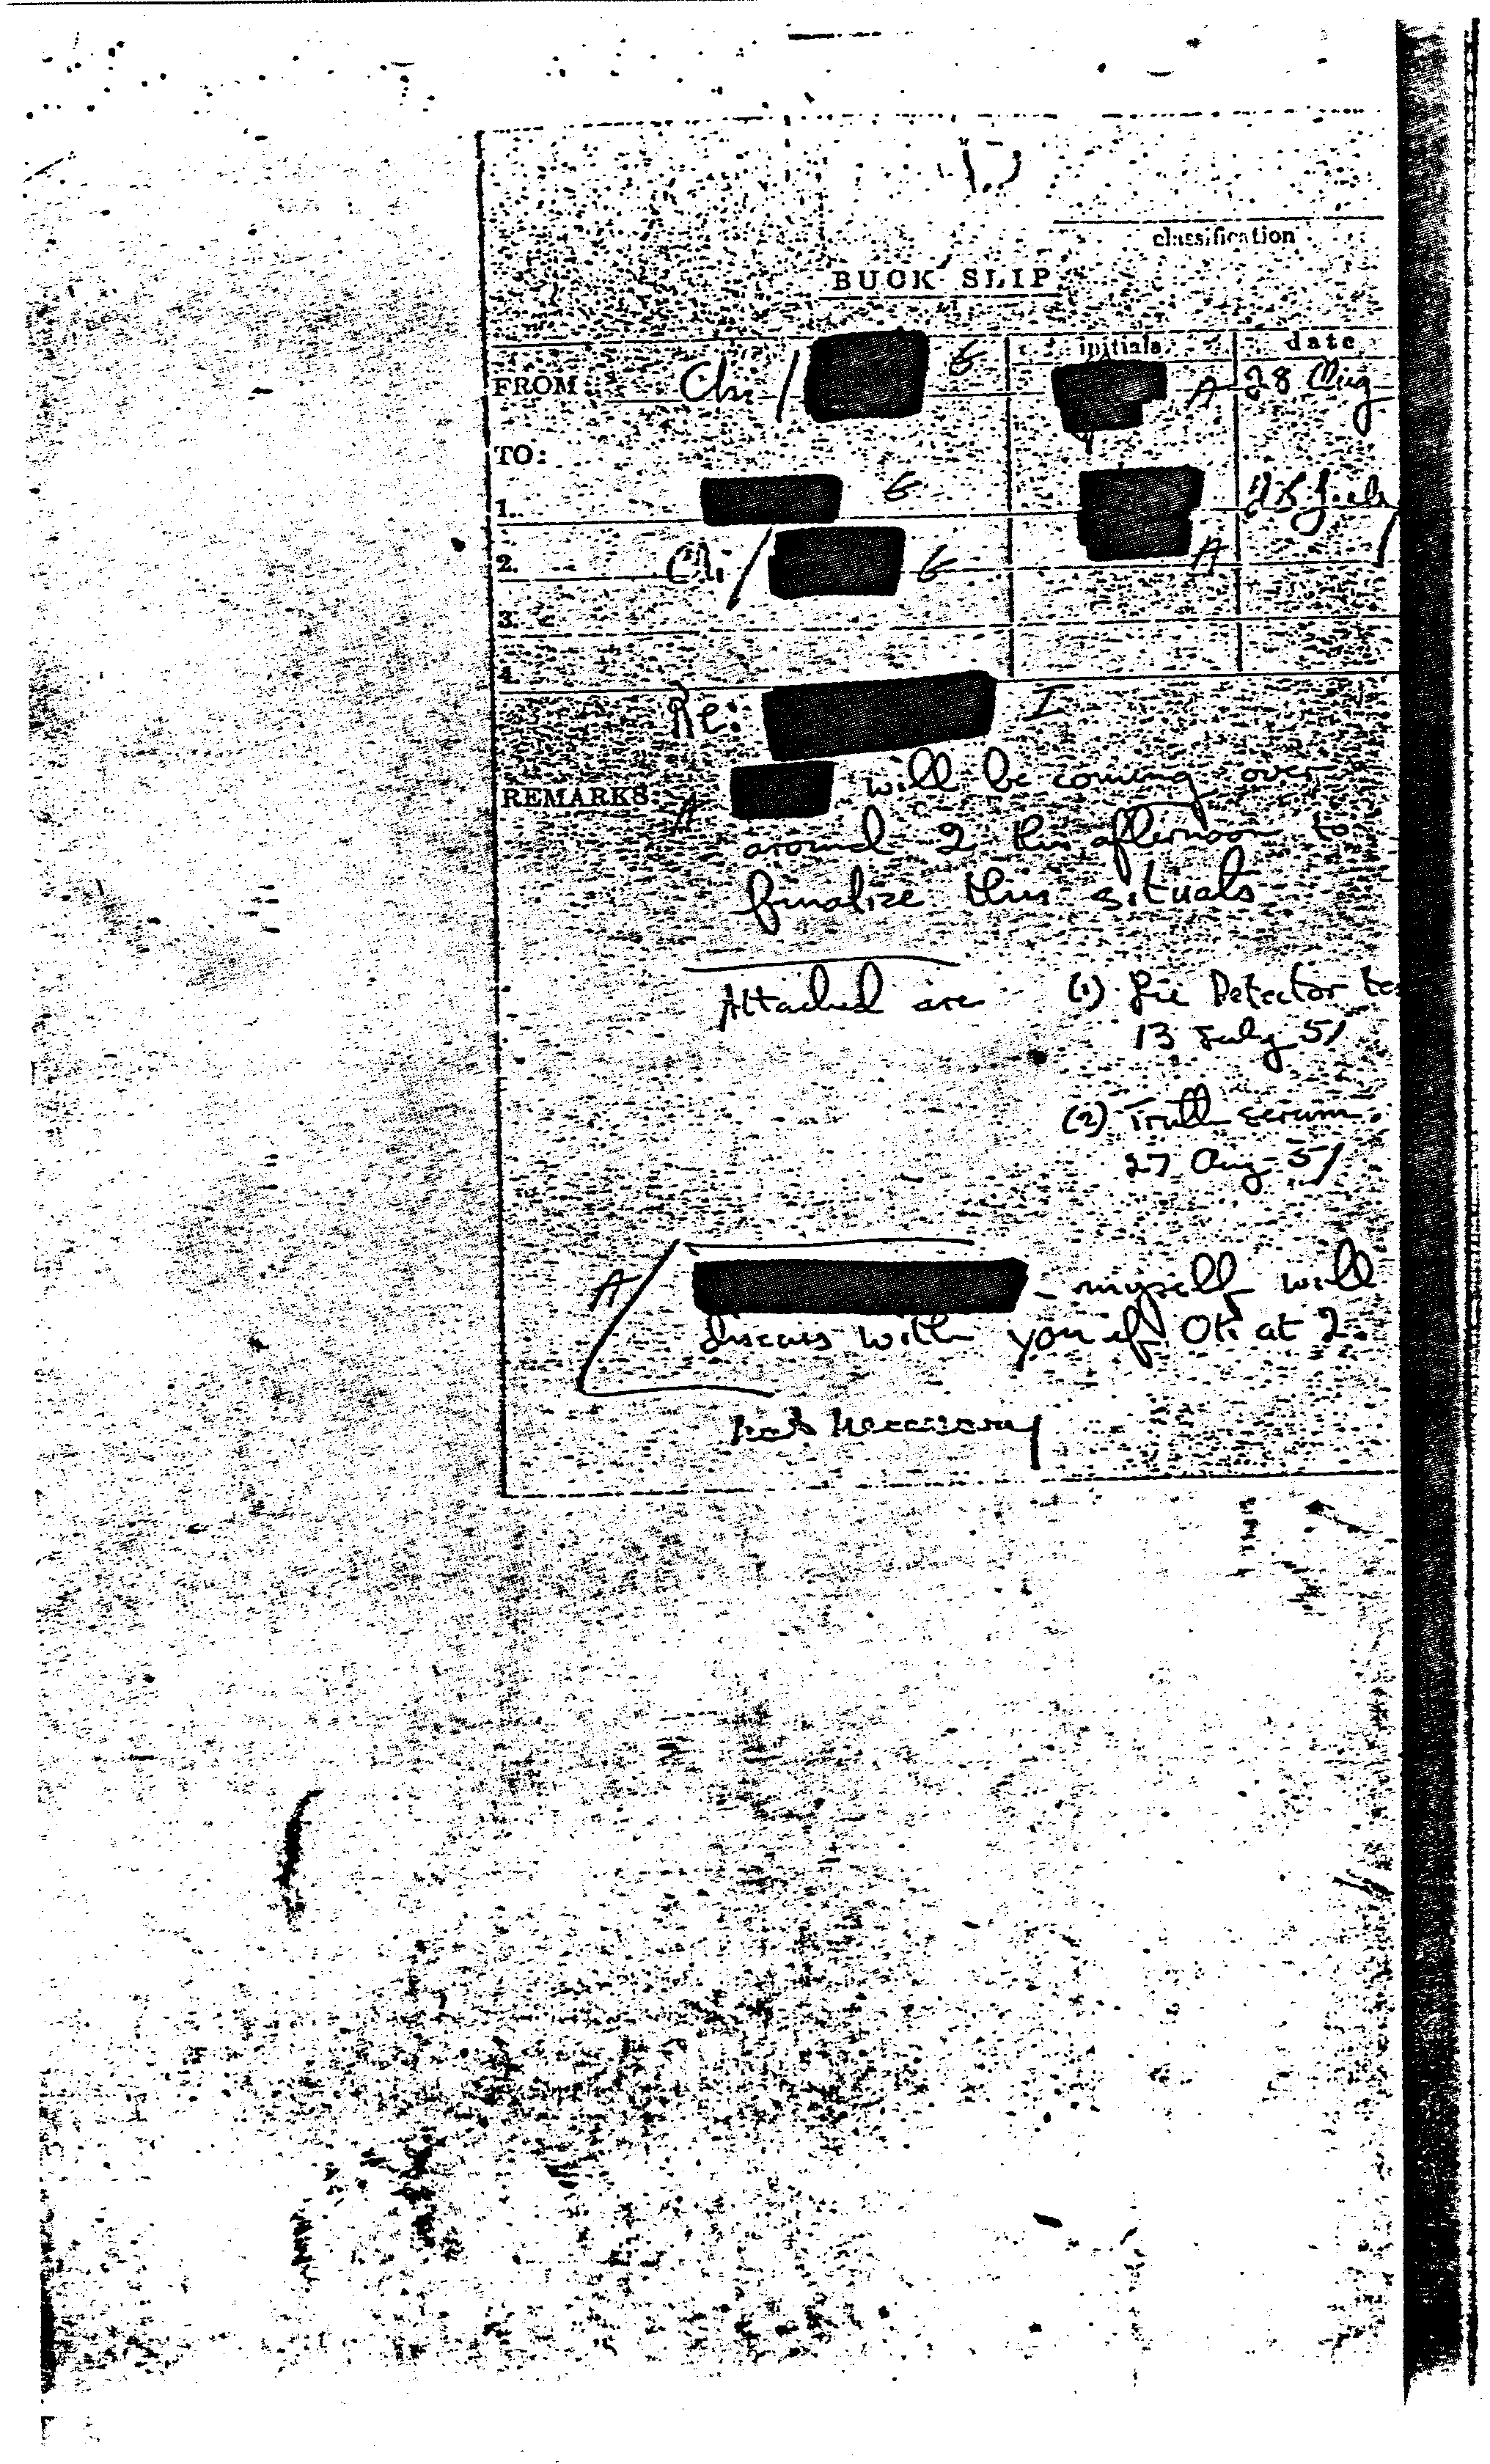 classification
BUCK SLIP
initials date
FROM: / G A 28 Aug
TO:
1. G
2. / G A
3.
4.
Re: I
REMARKS: A will be coming over
around 2 this afternoon to
finalize this
Attached are (1) Lie Detector
13 July 51
(2) Truth serum
27 Aug 51
A - myself will
discuss with you if OK at 2.
not necessary